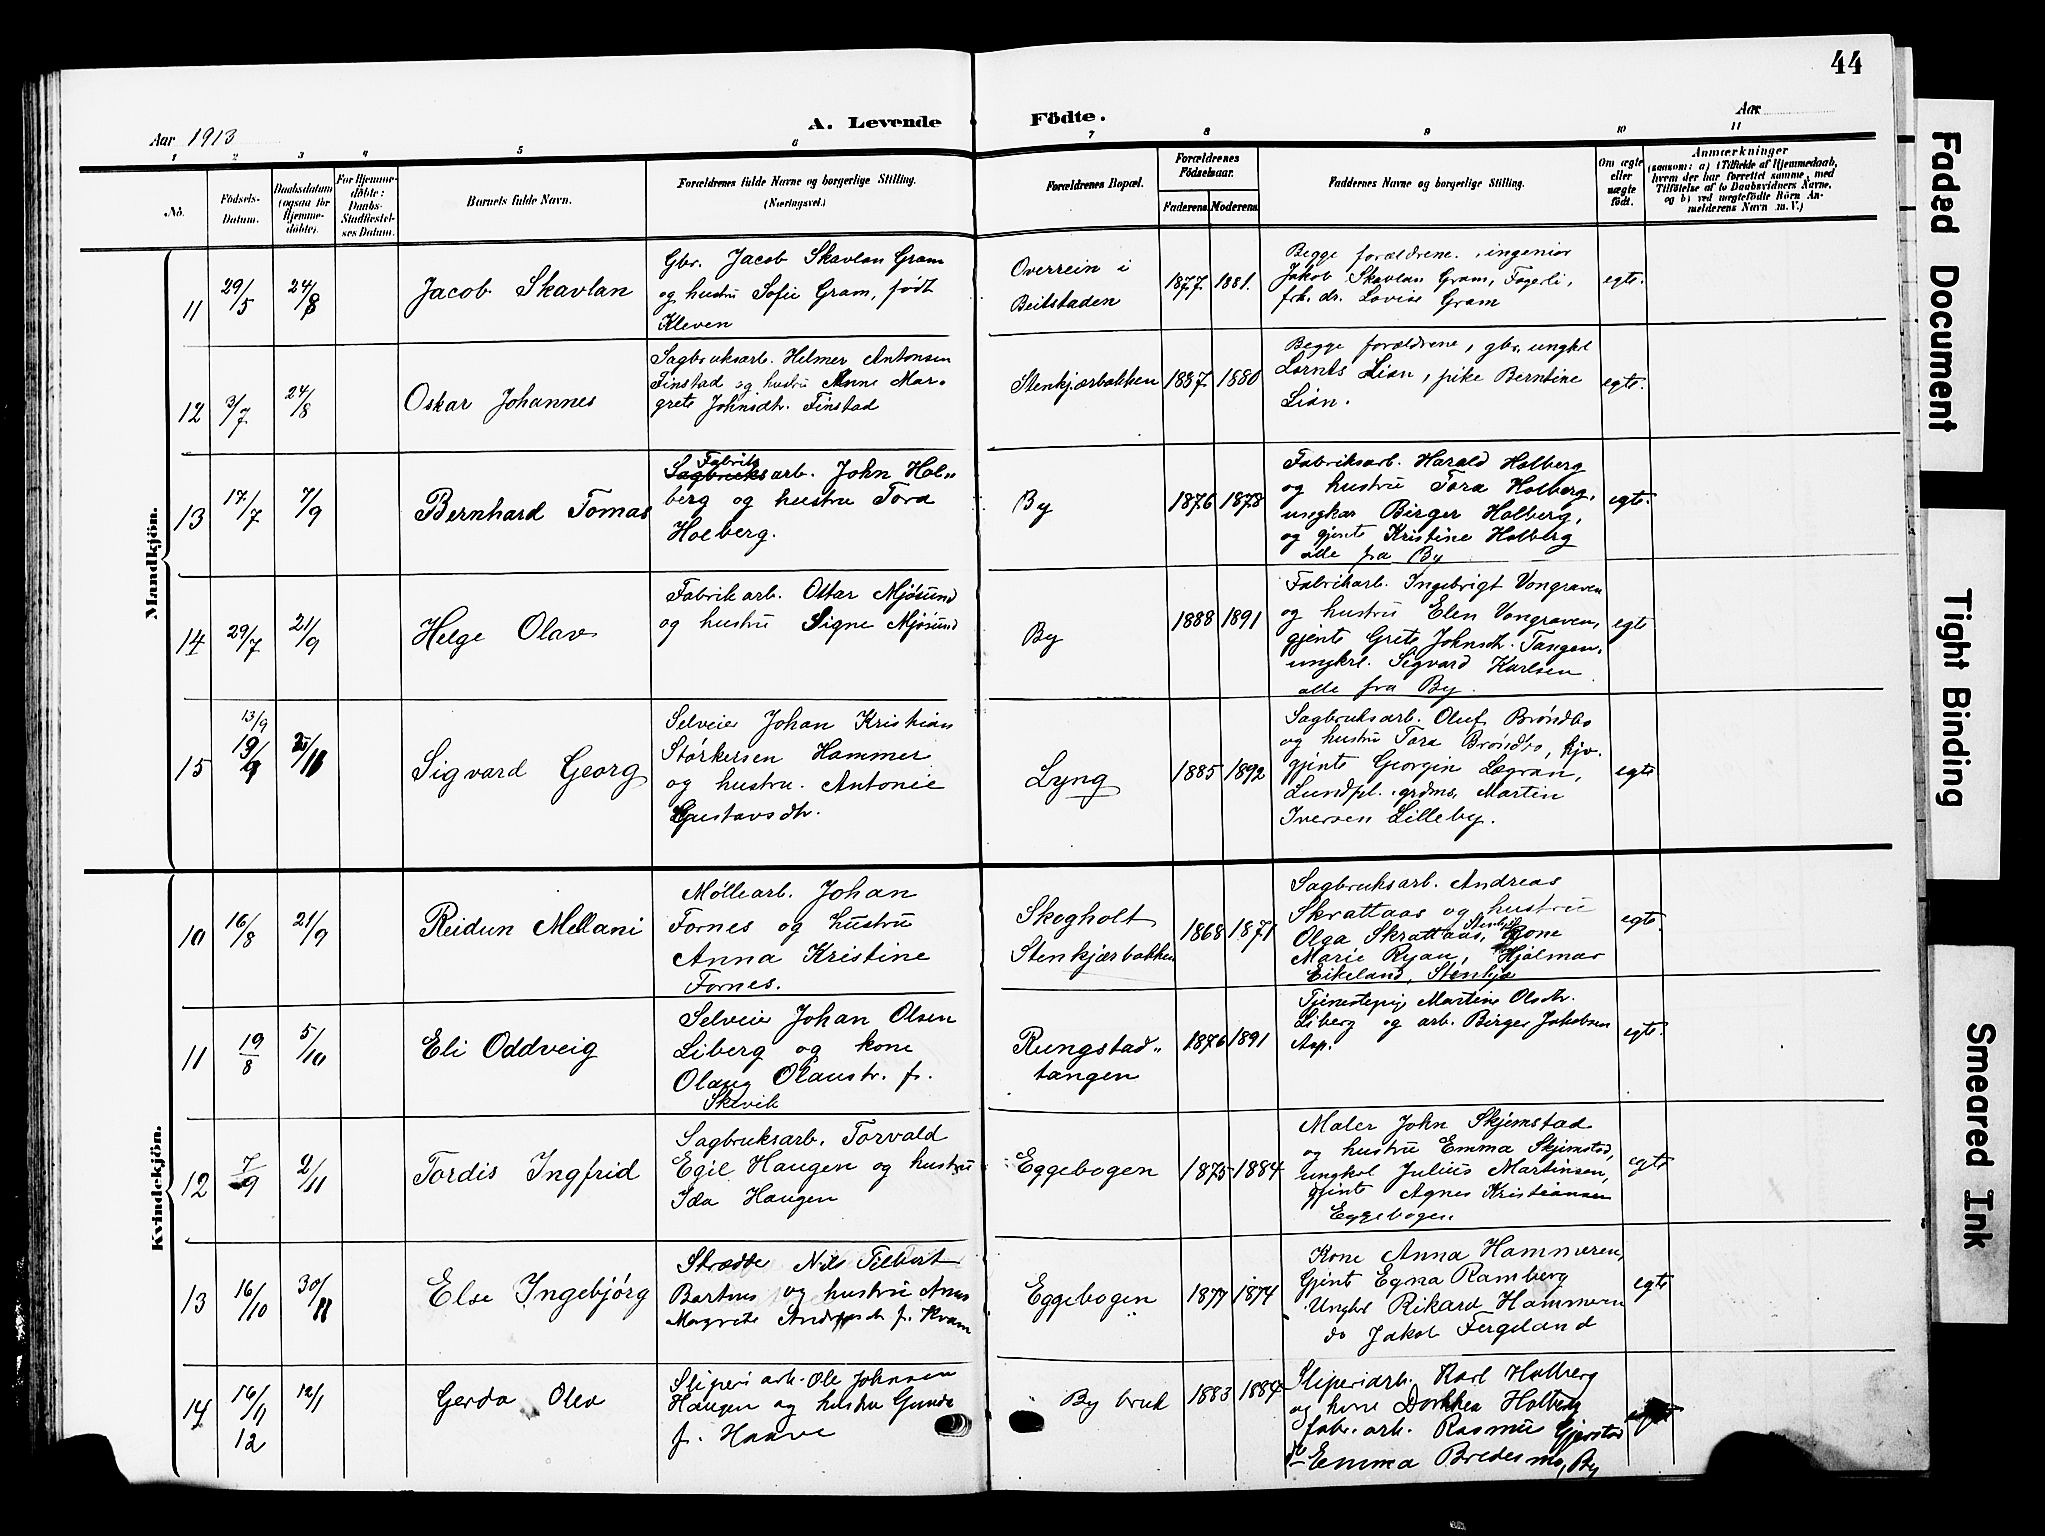 44
Aar 1913
A. Levende Födte.
Aar
1 2 3 4 5 6 7 8 9 10 11
No.
Födsels-Datum.
Daabsdatum (ogsaa for Hjemme-döbte).
For Hjemme-döbte: Daabs-Stadfæstel-ses Datum.
Barnets fulde Navn.
Forældrenes fulde Navne og borgerlige Stilling.
(Næringsvei.)
Forældrenes Bopæl.
Forældrenes Födselsaar.
Faderens. Moderens.
Faddernes Navne og borgerlige Stilling.
Om ægte eller uægte födt.
Anmærkninger
(saasom: a) i Tilfælde af Hjemmedaab, hvem der har forrettet samme, med Tilföielse af to Daabsvidners Navne, og b) ved uægtefödte Börn Anmelderens Navn m. V.)
Mandkjön.
11 29/5 24/8 Jacob Skavlan
Gbr. Jacob Skavlan Gram
og hustru Sofie Gram, født
Kleven
Overrein i
Beitstaden
1877 1881.
Begge forældrene. ingeniør
Jakob Skavlan Gram, Fagerli,
frk. dr. Lovise Gram
egte.
12 3/7 24/8 Oskar Johannes
Sagbruksarb. Helmer Antonsen
Finstad og hustru Anne Mar-
grete Johnsdtr. Finstad
Stenkjærbakken 1837 1880
Begge forældrene, gbr. ungkl
Lornts Lian, pike Berntine
Lian.
egte.
13 17/7 7/9 Bernhard Tomas
Fabrik
Sagbruksarb. John Hol-
berg og hustru Tora
Holberg.
By
1876 1878
Fabriksarb. Harald Holberg
og hustru Tora Holberg,
ungkar Birger Holberg,
og gjente Kristine Holberg
alle fra By
egte.
14 29/7 21/9 Helge Olav
Fabrikarb. Ottar Mjøsund
og hustru Signe Mjøsund
By
1888 1891
Fabrikarb. Ingebrigt Vongraven
og hustru Elen Vongraven,
gjente Grete Johnsdtr. Tangen,
ungkrl. Sigvard Karlsen
alle fra By.
egte
15 13/9 19/9 Sigvard Georg
Selveier Johan Kristian
Størkersen Hammer
og hustru. Antonie
Gustavsdtr.
Lyng
1885 1892
Sagbruksarb. Oluf Brøndbo
og hustru Tora Brøndbo,
gjente Georgin Lægran,
Lundpl. grdms. Martin
Iversen Lilleby.
egte
Kvindekjön.
10 16/8 21/9 Reidun Mellani
Møllearb. Johan
Fornes og hustru
Anna Kristine
Fornes.
Skogholt
Stenkjærbakken
1868 1871
Sagbruksarb. Andreas
Skrattaas og hustru
Olga Skrattaas, Kone
Marie Ryan, Hjalmar
Eikeland, Stenkjær
egte.
11 19/8 5/10 Eli Oddveig
Selveier Johan Olsen
Liberg og kone
Olaug Olaustr. f.
Skevik
Rungstad-
tangen
1876 1891
Tjenestepig Martine Olsdtr.
Liberg og arb. Birger Jakobsen
Asp.
egte.
12 7/9 2/11 Tordis Ingfrid
Sagbruksarb. Torvald
Egil Haugen og hustru
Ida Haugen
Eggebogen
1875 1884
Maler John Skjemstad
og hustru Emma Skjemstad,
ungkal Julius Martinsen,
gjente Agnes Kristiansen
Eggebogen
egte
13 16/10 30/11 Else Ingebjørg
Skrædde Nils Tilbert
Bartnes og hustru Anne
Margrete f. Kvam
Eggebogen
1877 1874
Kone Anna Hammeren,
Gjente Egna Ramberg
Ungkal Rikard Hammeren
do Jakob Fergeland
egte
14 16/11 12 12/1 Gerda Olea
Sliperiarb. Ole Johnsen
Haugen og hustru Gunda
f. Haave
By bruk
1883 1884
Sliperiarb. Karl Holberg
og kone Dorthea Holberg
fabr. arb. Rasmus Gjerstad
Emma Bredesmo, By
Faded Document
Tight Binding
Smeared Ink